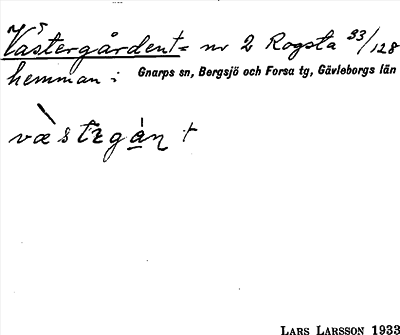 Västergården t = nr 2 Rogsta 33/128
hemman: Gnarps sn, Bergsjö och Forsa tg, Gävleborgs län
væ̀stɛrgán t
LARS LARSSON 1933